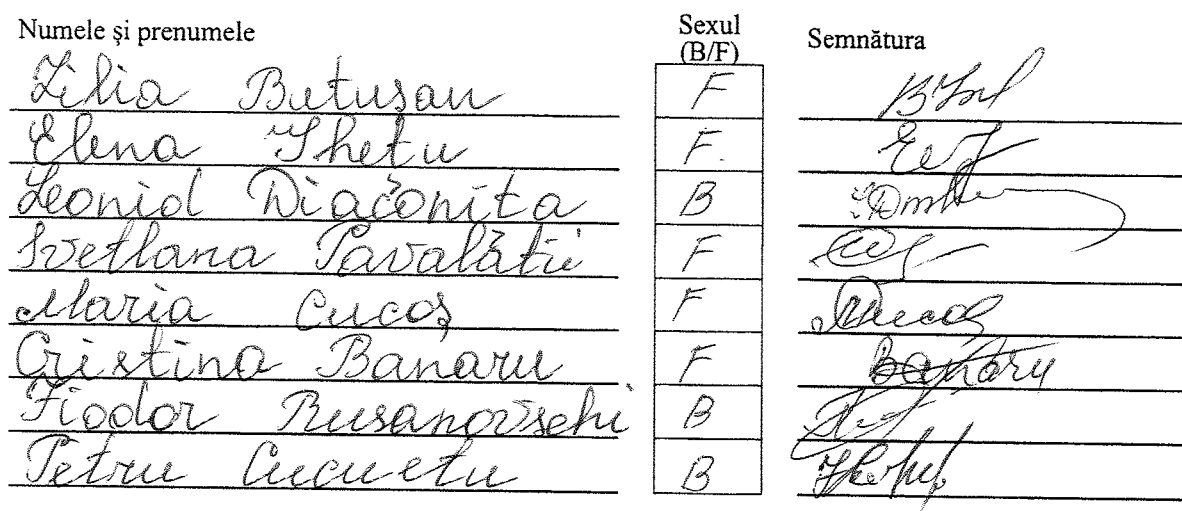 Numele și prenumele Sexul (B/F) Semnătura
Lilia Butușan F
Elena F
Leonid Diaconița B
Svetlana Pavalătii F
Maria Cucoș F Cucoș
Cristina Banaru F Banaru
Fiodor Rusanovschi B
Petru Cucuetu B